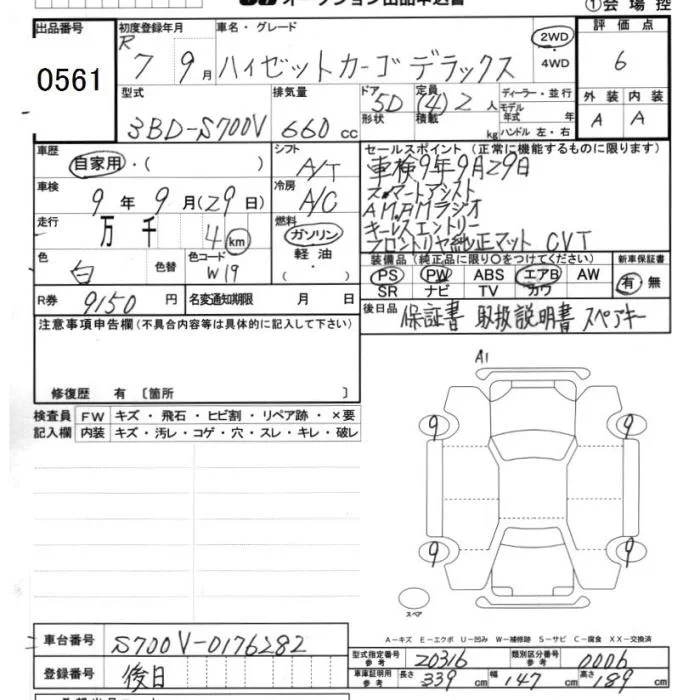 オークション出品申込書 ①会場控
出品番号 初度登録年月 車名・グレード 評価点
0561 R 7 9月 ハイゼットカーゴ デラックス 2WD・4WD 6
型式 排気量 ドア 5D 形状 定員 (4)2人 積載 kg ディーラー・並行 モデル年式 年式 ハンドル 左・右 外装 内装
3BD-S700V 660cc A A
車歴 自家用・( ) シフト A/T セールスポイント(正常に機能するものに限ります)
車検 9年9月(29日) 冷房 A/C 車検9年9月29日
スマートアシスト
走行 万千 4km 燃料 ガソリン・軽油・( ) AM,FMラジオ
キーレスエントリー
フロントリヤ純正マット CVT
色 白 色替 色コード W19 装備品(純正品に限り○をつけてください) 新車保証書
PS PW ABS エアB AW 有・無
SR ナビ TV カワ
R券 9150円 名変通知期限 月 日 後日品 保証書 取扱説明書 スペアキー
注意事項申告欄(不具合内容等は具体的に記入して下さい)
A1
修復歴 有 〔箇所 〕
検査員 FW キズ・飛石・ヒビ割・リペア跡・×要
記入欄 内装 キズ・汚レ・コゲ・穴・スレ・キレ・破レ
9 9
9 9
スペア
A−キズ E−エクボ U−凹み W−補修跡 S−サビ C−腐食 XX−交換済
車台番号 S700V-0176282
型式指定番号 参考 20316 類別区分番号 参考 0006
登録番号 後日 車庫証明用 参考 長さ 339cm 幅 147cm 高さ 189cm